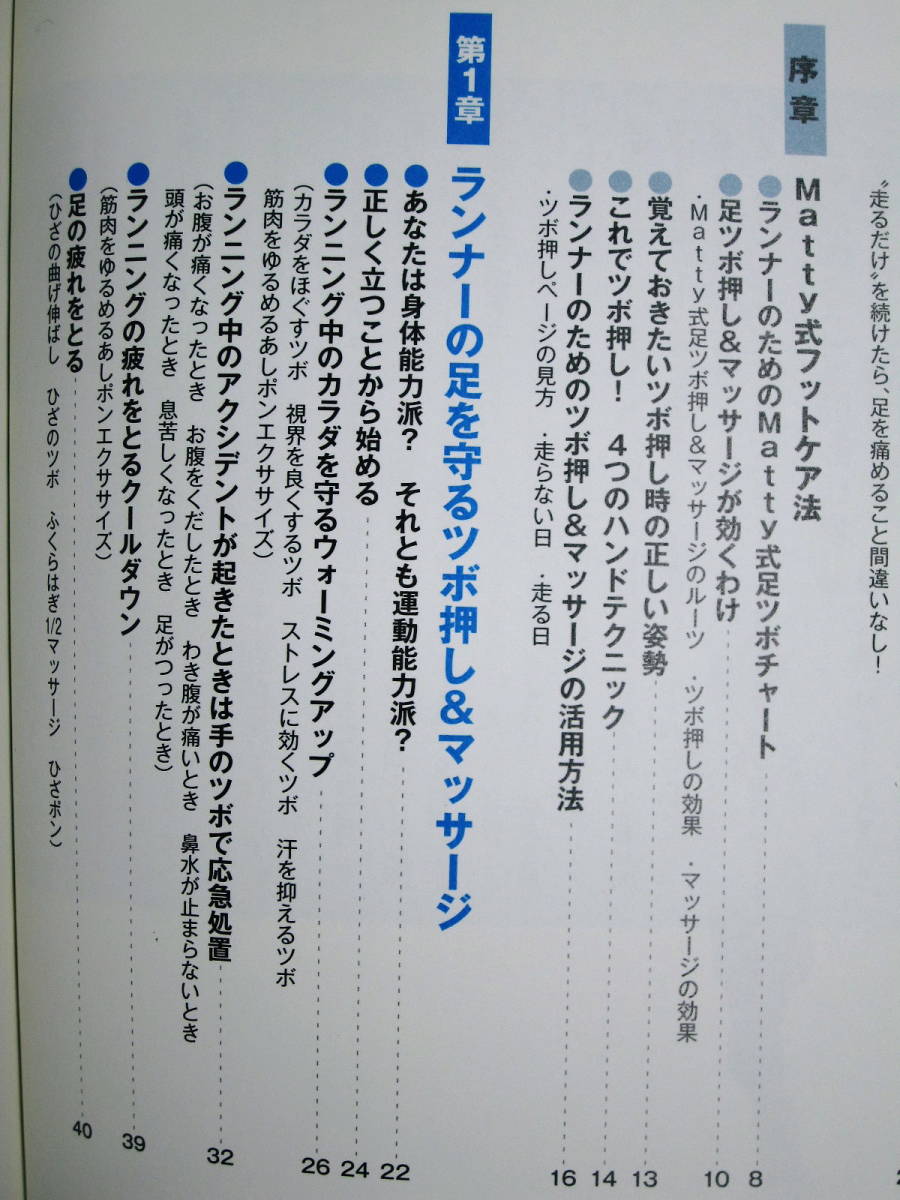 〝走るだけ〟を続けたら、足を痛めること間違いなし！
序章
Matty式フットケア法
●ランナーのためのMatty式足ツボチャート 8
●足ツボ押し&マッサージが効くわけ 10
・Matty式足ツボ押し&マッサージのルーツ ・ツボ押しの効果 ・マッサージの効果
●覚えておきたいツボ押し時の正しい姿勢 13
●これでツボ押し！ 4つのハンドテクニック 14
●ランナーのためのツボ押し&マッサージの活用方法 16
・ツボ押しページの見方 ・走らない日 ・走る日
第1章
ランナーの足を守るツボ押し&マッサージ
●あなたは身体能力派？ それとも運動能力派？ 22
●正しく立つことから始める 24
●ランニング中のカラダを守るウォーミングアップ 26
（カラダをほぐすツボ 視界を良くするツボ ストレスに効くツボ 汗を抑えるツボ
筋肉をゆるめるあしポンエクササイズ）
●ランニング中のアクシデントが起きたときは手のツボで応急処置 32
（お腹が痛くなったとき お腹をくだしたとき わき腹が痛いとき 鼻水が止まらないとき
頭が痛くなったとき 息苦しくなったとき 足がつったとき）
●ランニングの疲れをとるクールダウン 39
（筋肉をゆるめるあしポンエクササイズ）
●足の疲れをとる 40
（ひざの曲げ伸ばし ひざのツボ ふくらはぎ1/2マッサージ ひざポン）